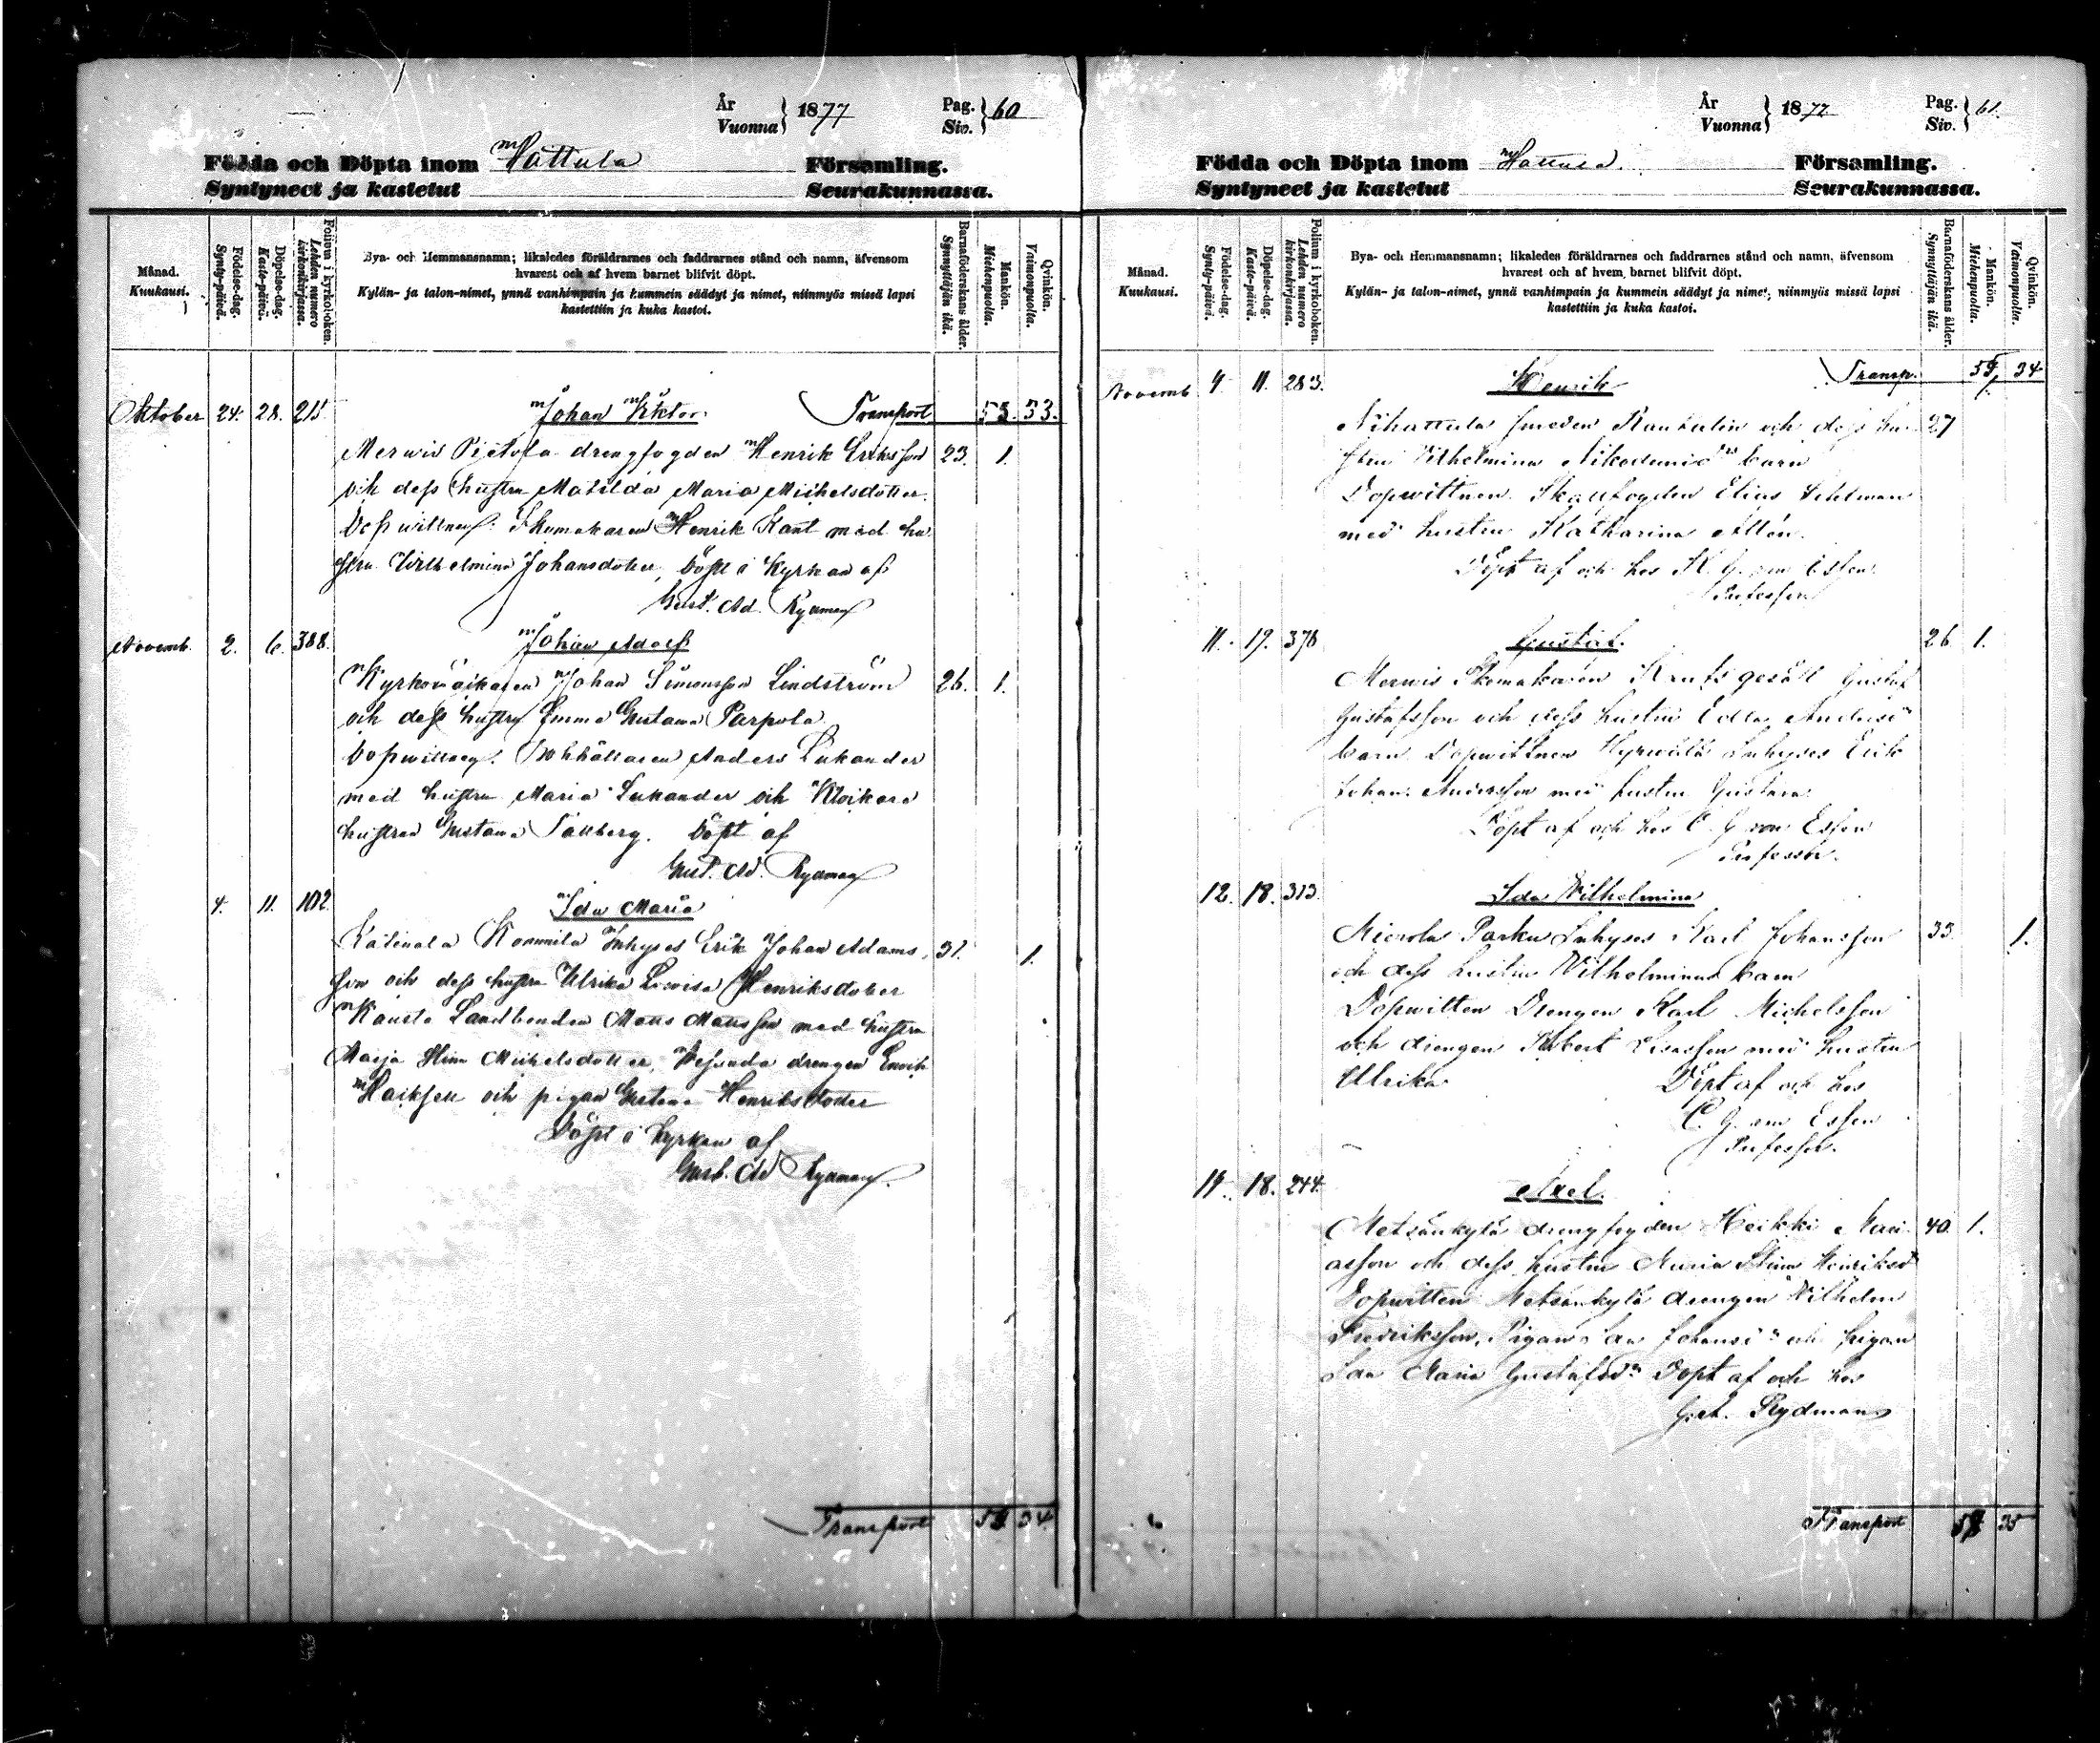 År
Vuonna } 1877
Pag.
Siv. } 60
Födda och Döpta inom Hattula Församling.
Syntyneet ja kastetut Seurakunnassa.
Månad.
Kuukausi.
Födelse-dag.
Synty-päivä.
Döpelse-dag.
Kaste-päivä.
Folium i kyrkoboken.
Lehden numero kirkonkirjassa.
Bya- och Hemmansnamn; likaledes föräldrarnes och faddrarnes stånd och namn, äfvensom
hvarest och af hvem barnet blifvit döpt.
Kylän- ja talon-nimet, ynnä vanhimpain ja kummein säädyt ja nimet, niinmyös missä lapsi
kastettiin ja kuka kastoi.
Barnaföderskans ålder.
Synnyttäjän ikä.
Mankön.
Miehenpuolta.
Qvinkön.
Vaimonpuolta.
Oktober 24. 28. 211 Johan Viktor. Transport 55. 53.
Merwis Pietola drengfogden Henrik Eriksson 23. 1.
och dess hustru Matilda Maria Michelsdotter.
Dopwittnen: Skomakaren Henrik Kant med hu
stru Wilhelmina Johansdotter, Döpt i Kyrkan af
Gust. Ad. Rydman
Novemb. 2. 6. 388. Johan Adolf
Johan Simonsson Lindström 26. 1.
och dess hustru Emma Gustava Parpola
Dopwittnen. Anders Lukander
med hustru Maria Lukander och
hustrun Gustava Tallberg. Döpt af
Gust. Ad. Rydman
4. 11. 102. Ida Maria
Katinala Inhyses Erik Johan Adams 31. 1.
son och dess hustru Ulrika Lovisa Henriksdoter
Landbonden Matts Mattsson med hustru
Maja Stina Michelsdotter, drengen
och pigan Gustava Henriksdotter
Döpt i kyrkan af
Gust. Ad Rydman.
Transport 34
År
Vuonna } 1877
Pag.
Siv. } 61.
Födda och Döpta inom Hattula Församling.
Syntyneet ja kastetut Seurakunnassa.
Månad.
Kuukausi.
Födelse-dag.
Synty-päivä.
Döpelse-dag.
Kaste-päivä.
Folium i kyrkoboken.
Lehden numero kirkonkirjassa.
Bya- och Hemmansnamn; likaledes föräldrarnes och faddrarnes stånd och namn, äfvensom
hvarest och af hvem barnet blifvit döpt.
Kylän- ja talon-nimet, ynnä vanhimpain ja kummein säädyt ja nimet, niinmyös missä lapsi
kastettiin ja kuka kastoi.
Barnaföderskans ålder.
Synnyttäjän ikä.
Mankön.
Miehenpuolta.
Qvinkön.
Vaimonpuolta.
Novemb 4 11. 283. Henrik Transp. 34
Nihattula smeden och dess hu 27
stru Vilhelmina barn
Dopwittnen. Skogsfogden Elias
med hustru Katharina
Döpt af och hos von Essen
Professor
11. 19. 378 Gustaf. 26 1.
Merwis Skomakaren gesäll Gustaf
Gustafsson och dess hustru Edla
barn Dopwittnen Inhyses Erik
Johan Andersson med hustru Gustava
Döpt af och hos C. G. von Essen
Professor.
12. 18. 313. Ida Wilhelmina
Mierola Parku Inhyses Karl Johansson 33 1.
och dess hustru Wilhelmina barn
Dopwitten Drengen Karl Michelsson
och drengen med hustru
Ulrika. Döpt af och hos
C. G. von Essen
Professor.
18. 244. Axel.
Metsänkylä drengfogden Heikki 40. 1.
asson och dess hustru Maria Stina Henriksd
Dopwitten Metsänkylä drengen Wilhelm
Fredriksson, Pigan och pigan
Maria Gustafsdr Döpt af och hos
Rydman
Transport 35